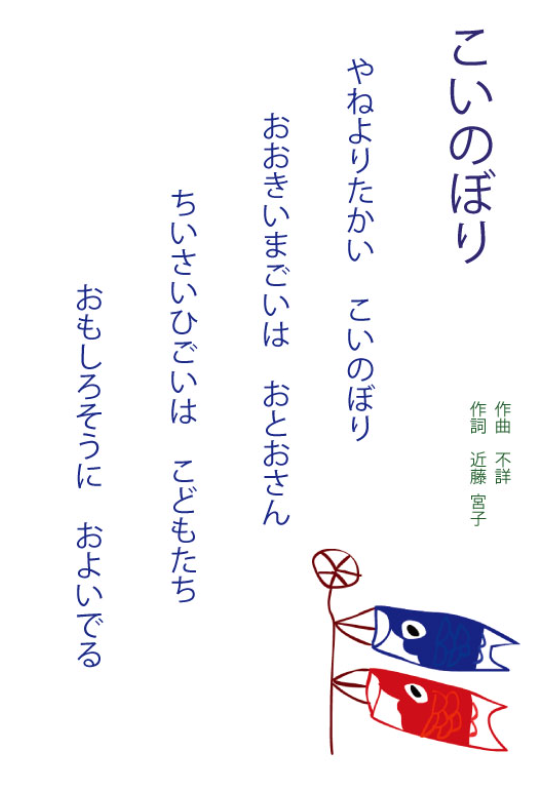 こいのぼり
作曲　不詳
作詞　近藤 宮子
やねよりたかい　こいのぼり
おおきいまごいは　おとおさん
ちいさいひごいは　こどもたち
おもしろそうに　およいでる